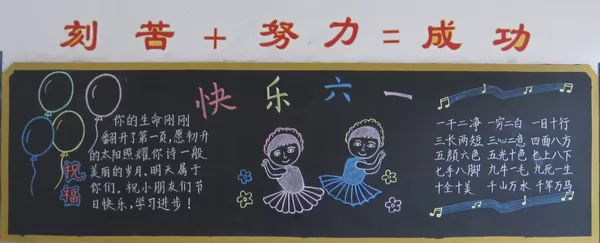 刻苦+努力=成功
快乐六一
你的生命刚刚
翻开了第一页，愿初升
的太阳照耀你诗一般
美丽的岁月。明天属于
你们。祝小朋友们节
日快乐，学习进步！
祝福
一干二净 一穷二白 一目十行
三长两短 三心二意 四面八方
五颜六色 五光十色 七上八下
七手八脚 九牛一毛 九死一生
十全十美 千山万水 千军万马